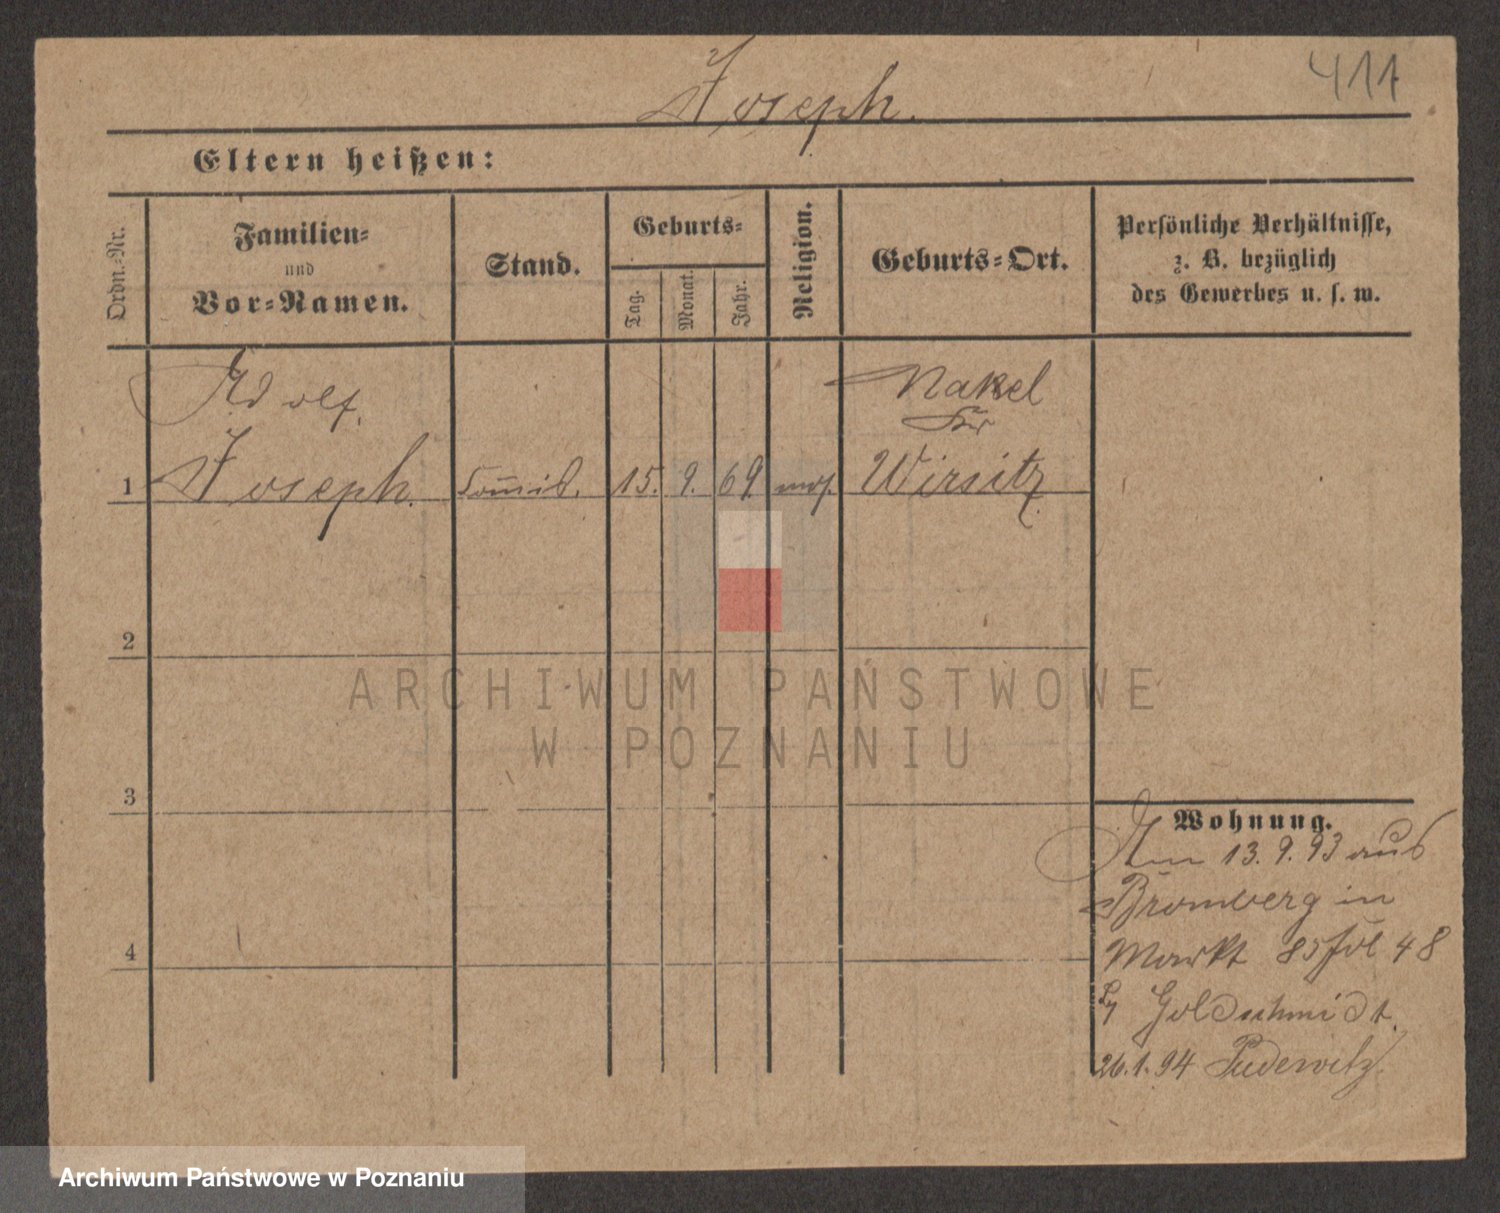 Joseph.
411
Eltern heißen:
Ordn.-Nr.
Familien-
und
Vor-Namen.
Stand.
Geburts-
Tag.
Monat.
Jahr.
Religion.
Geburts-Ort.
Persönliche Verhältnisse,
z. B. bezüglich
des Gewerbes u. s. w.
Adolf.
Nakel
Kr
1 Joseph. Commis. 15. 9. 69 mos. Wirsitz
2
3
4
Wohnung.
Am 13. 9. 93 aus
Bromberg in
Markt 85 Fol 48
by Goldschmidt.
26. 1. 94 Pudewitz
ARCHIWUM PAŃSTWOWE
W POZNANIU
Archiwum Państwowe w Poznaniu